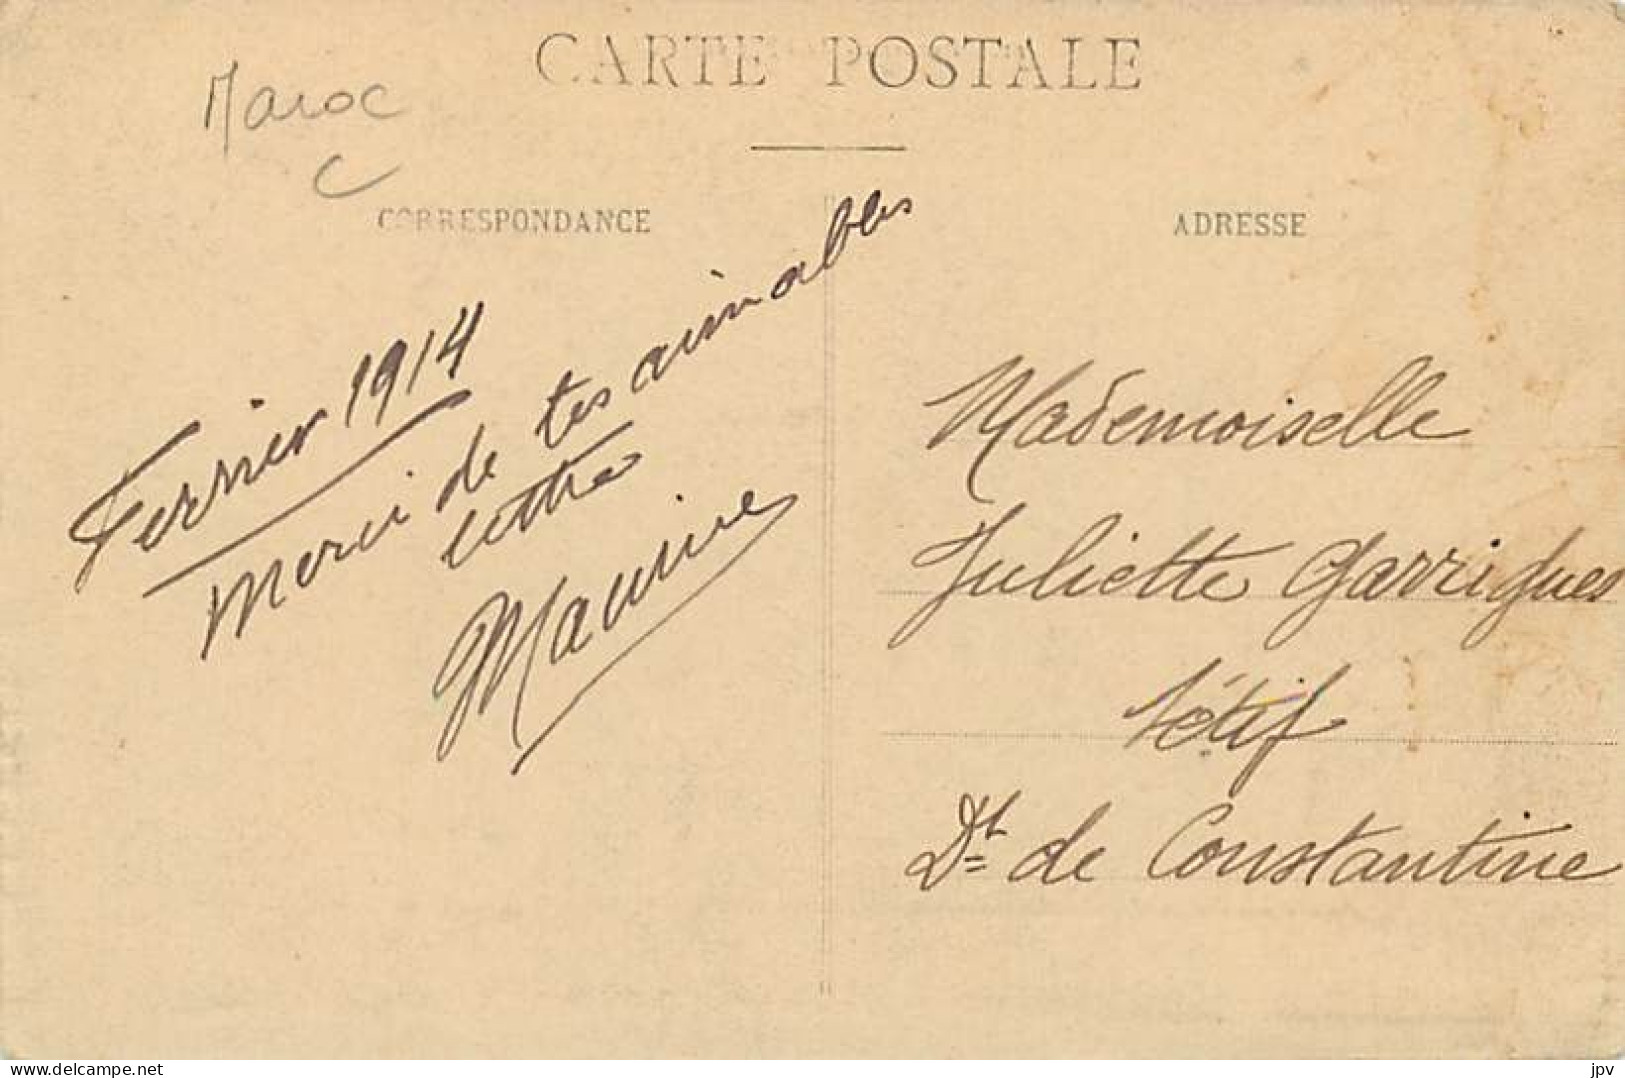 CARTE POSTALE
Maroc
C
CORRESPONDANCE
ADRESSE
Ferrier 1914
Merci de tes aimables
lettre
Maurice
Mademoiselle
Juliette Garrigues
Sétif
Dt de Constantine
delcampe.net
jpv